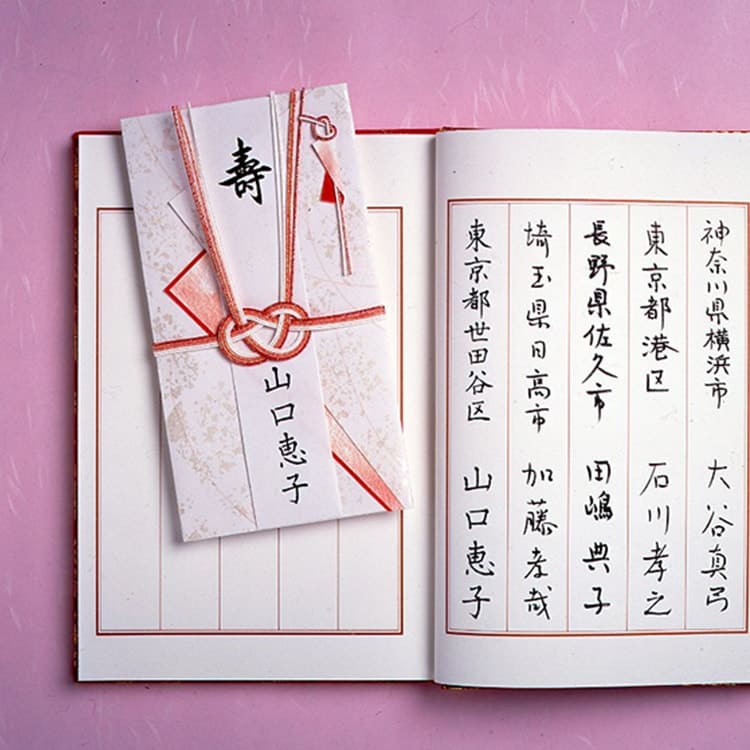 寿
山口恵子
神奈川県横浜市 大谷真弓
東京都港区 石川孝之
長野県佐久市 田嶋典子
埼玉県日高市 加藤孝哉
東京都世田谷区 山口恵子